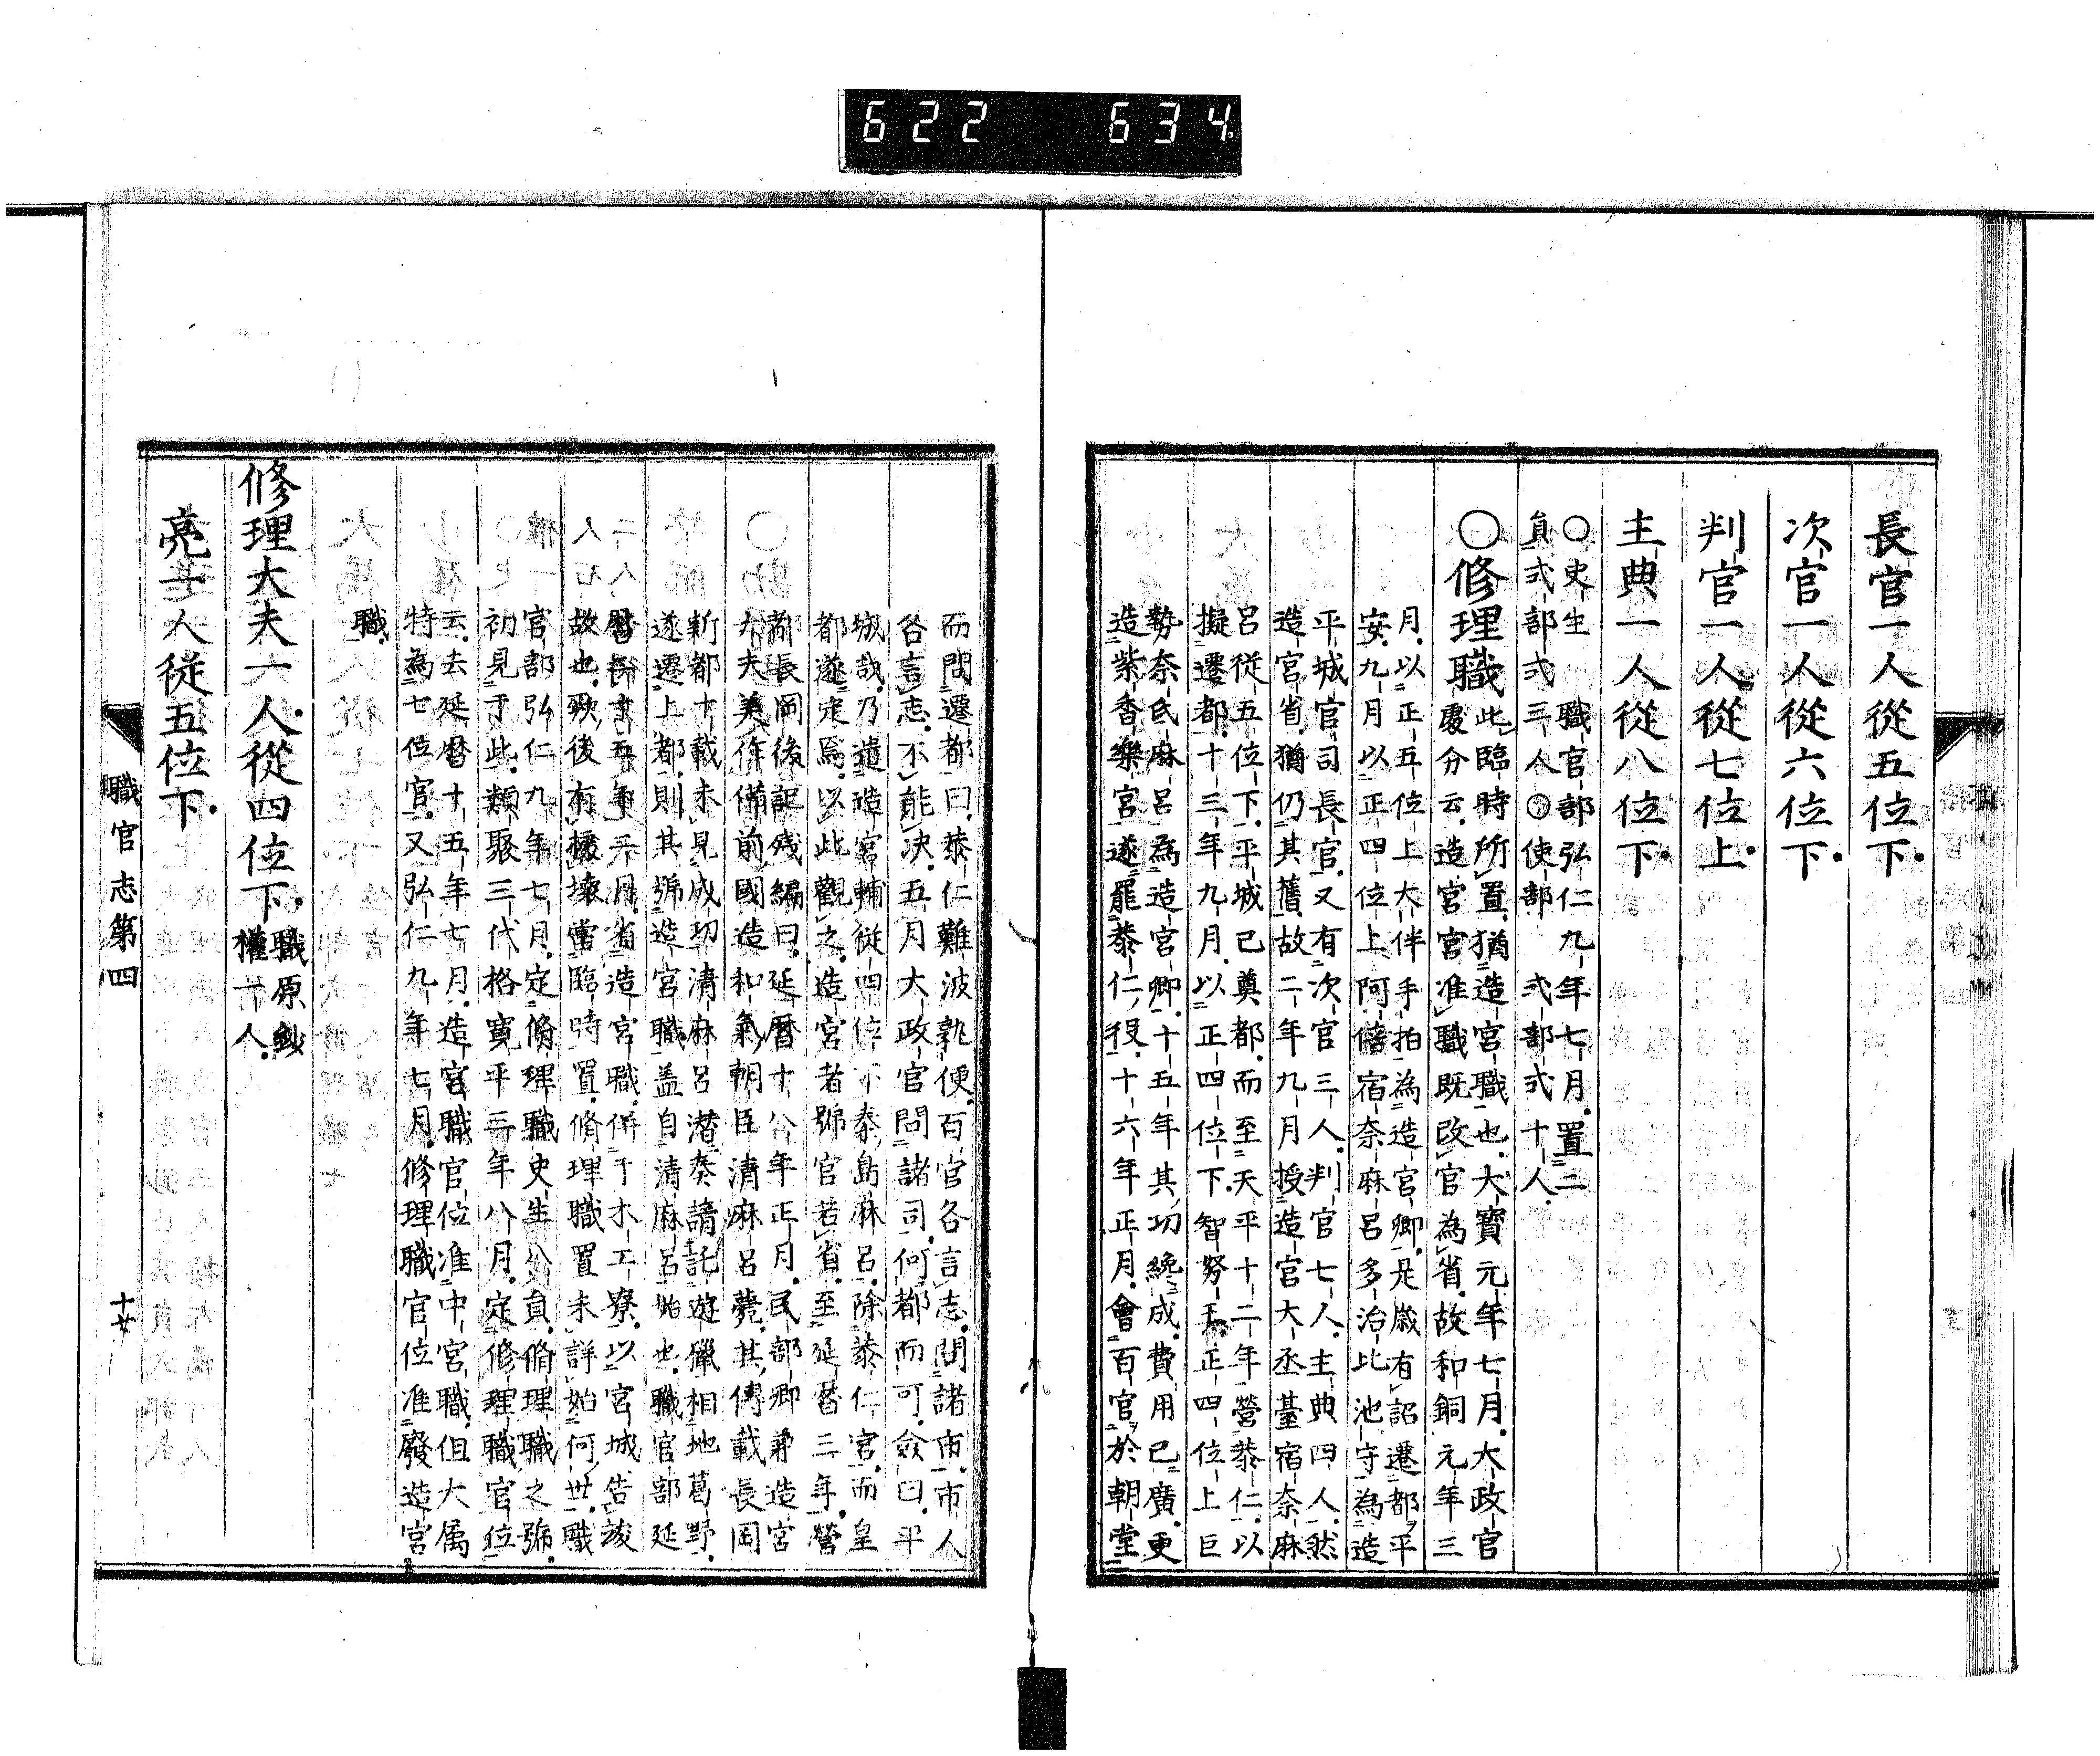 622 634
長官一人從五位下
次官一人從六位下
判官一人從七位上
主典一人從八位下
○史生 職官部弘仁九年七月置二
員式部式三人○使部 式部式十人
○修理職 此臨時所置猶造宮職也大寶元年七月大政官
處分云造宮官准職既改官為省故和銅元年三
月以正五位上大伴手拍為造宮卿是歲有詔遷都平
安九月以正四位上阿倍宿奈麻呂多治比池守為造
平城官司長官又有次官三人判官七人主典四人然
造宮省猶仍其舊故二年九月授造宮大丞臺宿奈麻
呂從五位下平城已奠都而至天平十二年營恭仁以
擬遷都十三年九月以正四位下智努王正四位上巨
勢奈氐麻呂為造宮卿十五年其功纔成費用已廣更
造紫香樂宮遂罷恭仁役十六年正月會百官於朝堂
而問遷都曰恭仁難波孰便百官各言志問諸市市人
各言志不能決五月大政官問諸司何都而可僉曰平
城哉乃遣造宮輔從四位下秦島麻呂除恭仁宮而皇
都遂定焉以此觀之造宮者號官若省至延曆三年營
都長岡後記殘編曰延曆十八年正月民部卿兼造宮
大夫美作備前國造和氣朝臣清麻呂薨其傳載長岡
新都十載未見成功清麻呂潛奏請託遊獵相地葛野
遂遷上都則其號造宮職蓋自清麻呂始也職官部延
曆 省造宮職併于木工寮以宮城告竣
故也歟後有 壞當臨時置修理職置未詳始何世職
官部弘仁九年七月定脩理職史生八員脩理職之號
初見于此類聚三代格寬平三年八月定修理職官位
云去延曆十五年七月造宮職官位准中宮職但大属
特為七位官又弘仁九年七月修理職官位准廢造宮
職
修理大夫一人從四位下 職原鈔
權一人
亮一人從五位下
職官志第四